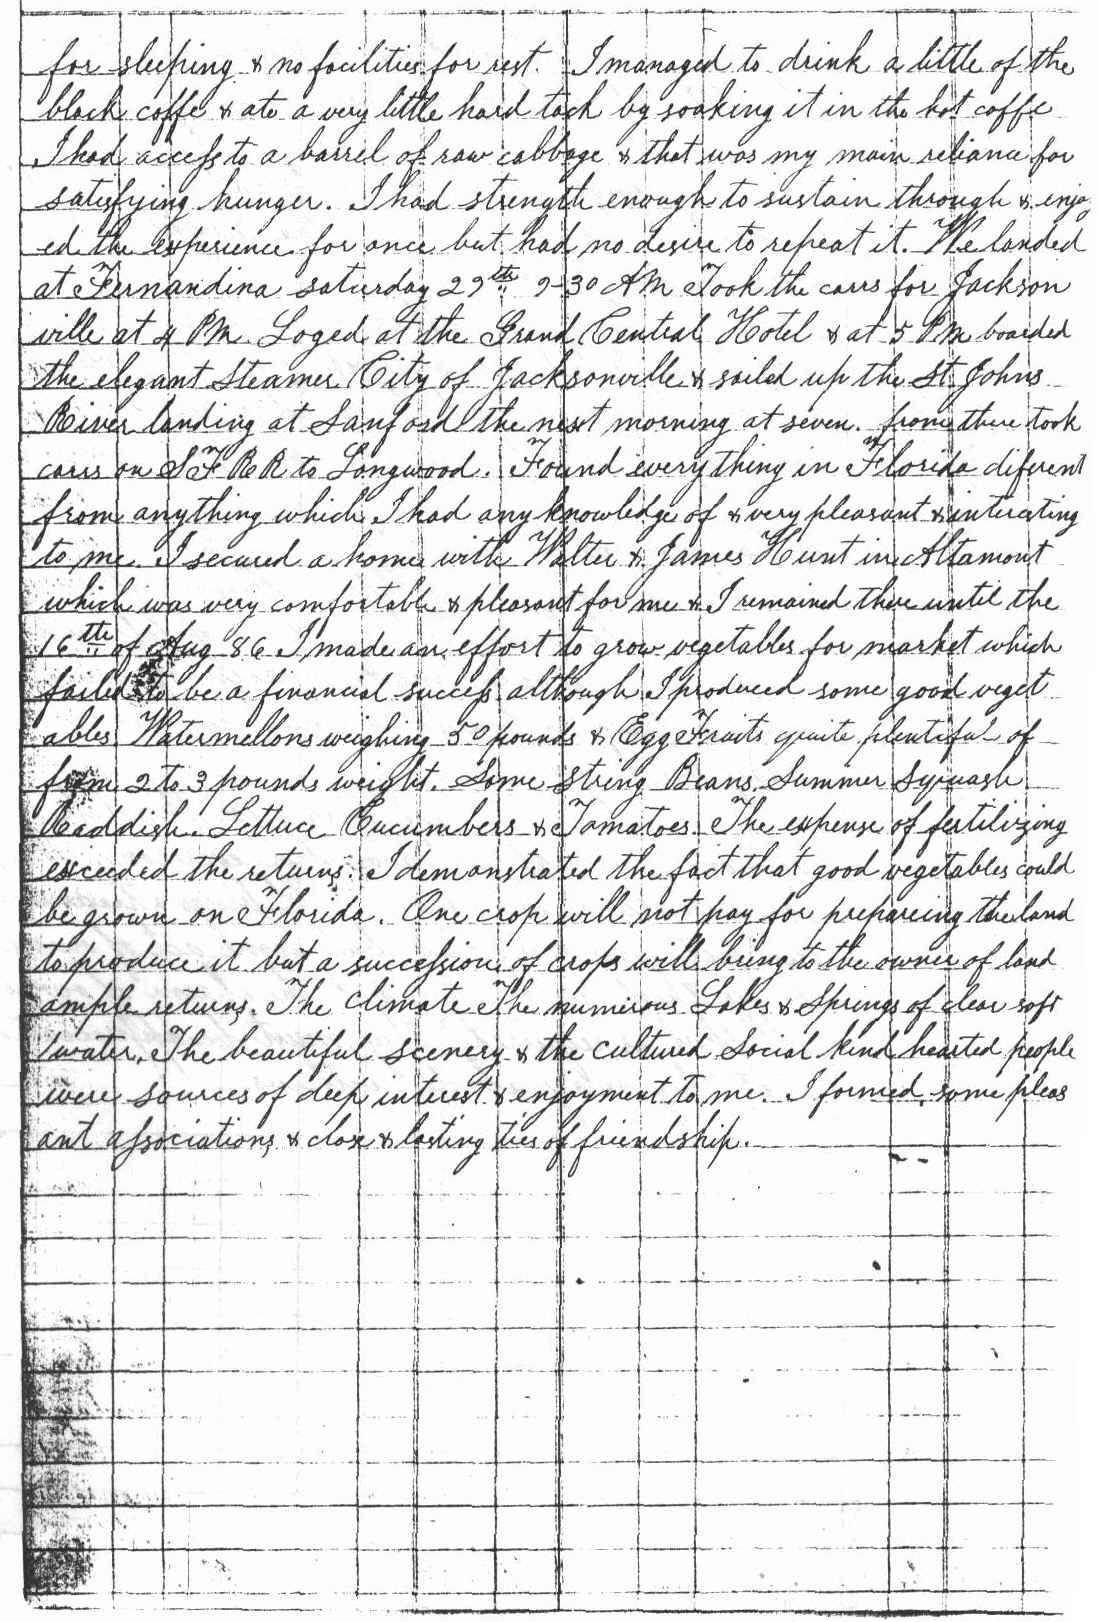 for sleeping & no facilities for rest. I managed to drink a little of the
black coffe & ate a very little hard tack by soaking it in the hot coffe
I had access to a barrel of raw cabbage & that was my main reliance for
satisfying hunger. I had strength enough to sustain through & enjoy
ed the experience for once but had no desire to repeat it. We landed
at Fernandina saturday 29th 9-30 AM Took the carrs for Jackson
ville at 4 PM. Loged at the Grand Central Hotel & at 5 PM boarded
the elegant Steamer City of Jacksonville & sailed up the St Johns
River landing at Sanford the next morning at seven. from there took
carrs on S F R R to Longwood. Found everything in Florida diferent
from anything which I had any knowledge of & very pleasant & interesting
to me. I secured a home with Walter & James Hunt in Altamont
which was very comfortable & pleasant for me & I remained there until the
16th of Aug 86 I made an effort to grow vegetables for market which
failed to be a financial success although I produced some good veget
ables Watermellons weighing 50 pounds & Egg Fruits quite plentiful of
from 2 to 3 pounds weight. Some String Beans Summer Squash
Raddish. Lettuce Cucumbers & Tomatoes. The expense of fertilizing
exceeded the returns. I demonstrated the fact that good vegetables could
be grown on Florida. One crop will not pay for prepareing the land
to produce it but a succession of crops will bring to the owner of land
ample returns. The Climate The numerous Lakes & Springs of clear soft
water. The beautiful scenery & the cultured Social kind hearted people
were sources of deep interest & enjoyment to me. I formed some pleas
ant associations & close & lasting ties of friendship.